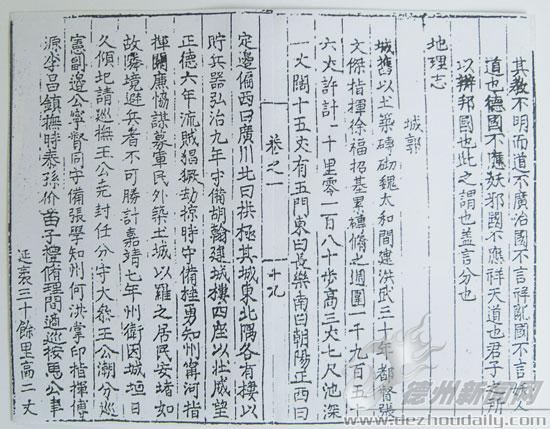 其教不明而道不廣治國不言祥亂國不言妖人
道也德國不應妖邪國不應祥天道也君子之所
以辨邦國也此之謂也蓋言分也
地理志
城郭
城舊以土築磚砌魏太和間建洪武三十年都督張
文傑指揮徐福招基累磚脩之週圍一千九百五十
六丈許計一十里零一百八十步高三丈七尺池深
一丈闊十五丈有五門東曰長樂南曰朝陽正西曰
卷之一
十九
定邊偏西曰廣川北曰拱極其城東北隅各有樓以
貯兵器弘治九年守備胡翰建城樓四座以壯威望
正德六年流賊猖獗劫掠時守備桂勇知州甯河指
揮關廉協謀募軍民外築土城以羅之居民安堵如
故鄰境避兵者不可勝計嘉靖七年州衛因城垣日
久傾圮請巡撫王公堯封任分守大叅王公潮分巡
憲副邊公寧督同守備張學知州何洪掌印指揮傅
源李昌鎮撫時泰孫价苗子檉脩理間適巡按公聿
延袤三十餘里高二丈
德州新闻网
www.dezhoudaily.com